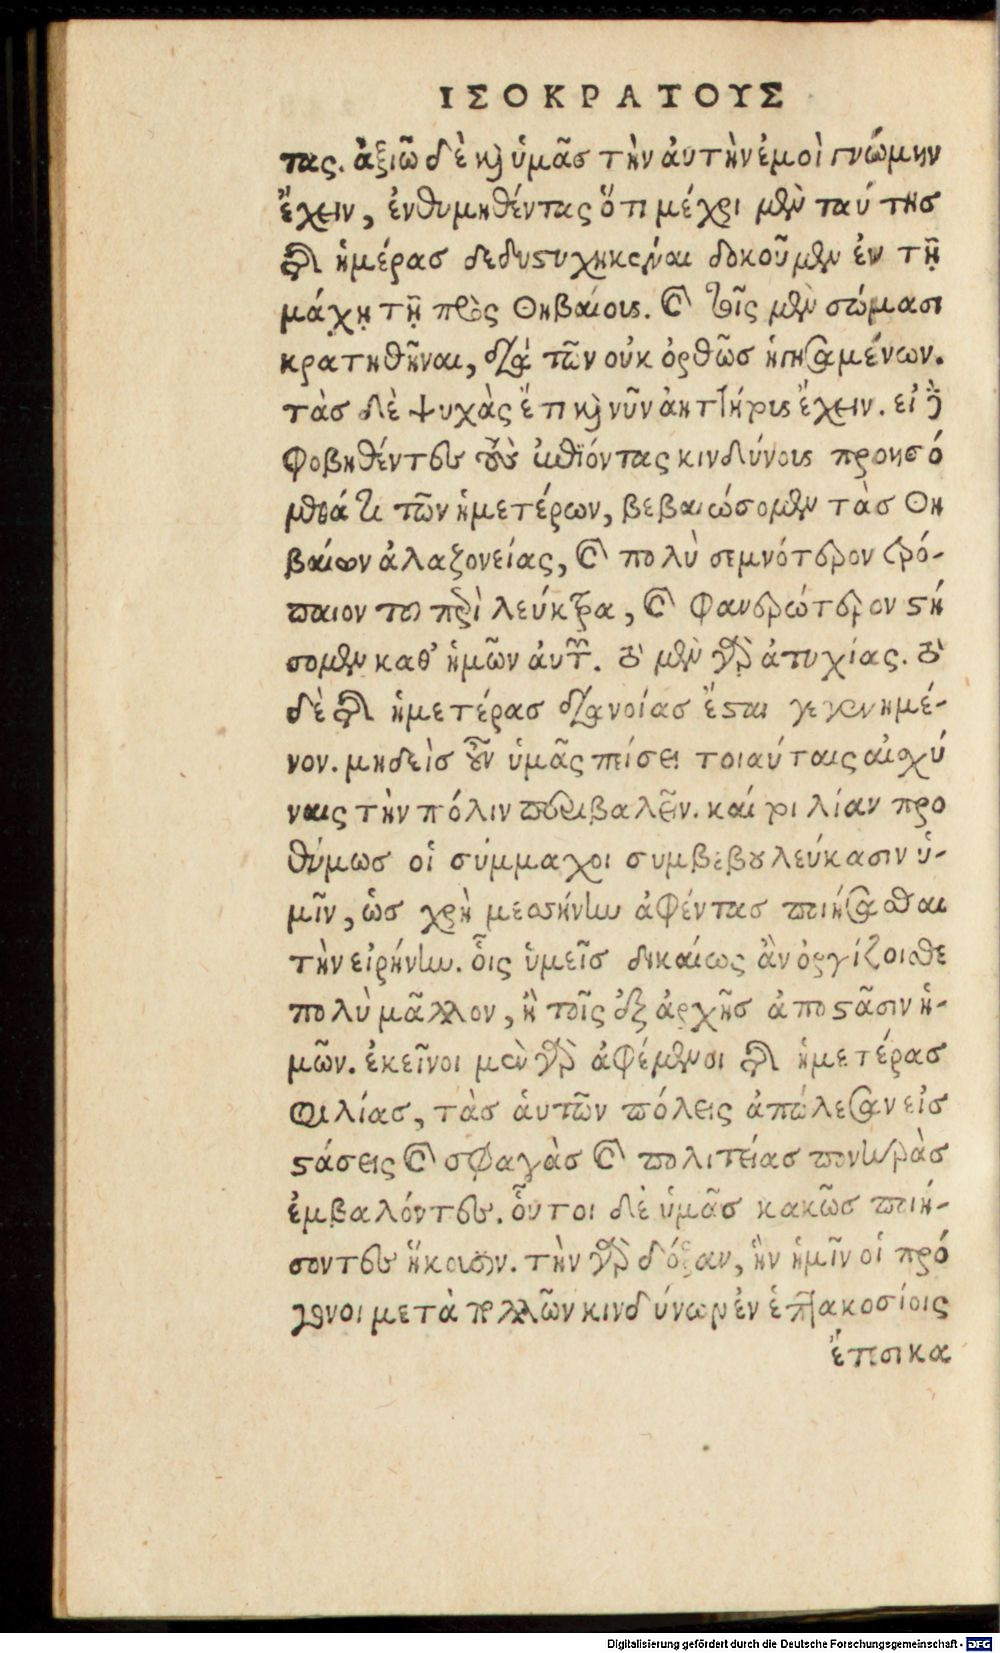 ΙΣΟΚΡΑΤΟΥΣ
τας. ἀξιῶ δὲ καὶ ὑμᾶς τὴν ἀυτὴν ἐμοὶ γνώμην
ἔχειν, ἐνθυμηθέντας ὅτι μέχρι μὲν ταύτης
τῆς ἡμέρας δεδυστυχηκέναι δοκοῦμεν ἐν τῇ
μάχῃ τῇ πρὸς Θηβαίους. καὶ τοῖς μὲν σώμασι
κρατηθῆναι, διὰ τῶν οὐκ ὀρθῶς ἡγησαμένων.
τὰς δὲ ψυχὰς ἔτι καὶ νῦν ἀηττήτους ἔχειν. εἰ δὲ
φοβηθέντες τοὺς ἐπιόντας κινδύνους προησό
μεθά τι τῶν ἡμετέρων, βεβαιώσομεν τὰς Θη
βαίων ἀλαζονείας, καὶ πολὺ σεμνότερον τρό-
παιον τοῦ περὶ λεύκτρα, καὶ φανερώτερον στή
σομεν καθ' ἡμῶν ἀυτῶν. τὸ μὲν γὰρ ἀτυχίας. τὸ
δὲ τῆς ἡμετέρας διανοίας ἔσται γεγενημέ-
νον. μηδεὶς οὖν ὑμᾶς πείσει τοιαύταις αἰσχύ
ναις τὴν πόλιν περιβαλεῖν. καίτοι λίαν προ
θύμως οἱ σύμμαχοι συμβεβουλεύκασιν ὑ-
μῖν, ὡς χρὴ μεσσήνην ἀφέντας ποιήσασθαι
τὴν εἰρήνην. οἷς ὑμεῖς δικαίως ἂν ὀργίζοισθε
πολὺ μᾶλλον, ἢ τοῖς ἐξ ἀρχῆς ἀποστᾶσιν ἡ-
μῶν. ἐκεῖνοι μὲν γὰρ ἀφέμενοι τῆς ἡμετέρας
φιλίας, τὰς ἁυτῶν πόλεις ἀπώλεσαν εἰς
στάσεις καὶ σφαγὰς καὶ πολιτείας πονηρὰς
ἐμβαλόντες. οὗτοι δὲ ὑμᾶς κακῶς ποιή-
σοντες ἥκουσιν. τὴν γὰρ δόξαν, ἣν ἡμῖν οἱ πρό
γονοι μετὰ πολλῶν κινδύνων ἐν ἑπτακοσίοις
ἔτεσι κα
Digitalisierung gefördert durch die Deutsche Forschungsgemeinschaft - DFG